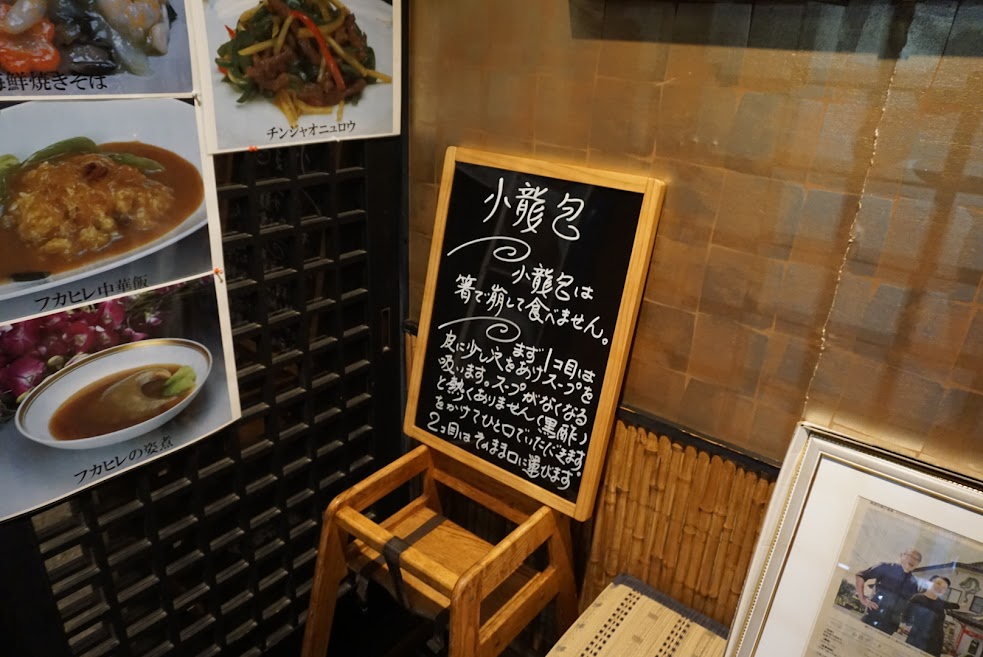 海鮮焼きそば
チンジャオニュロウ
フカヒレ中華飯
フカヒレの姿煮
小龍包
小龍包は
箸で崩して食べません。
まず1コ目は
皮に少し穴をあけスープを
吸います。スープがなくなる
と熱くありません(黒酢)
をかけてひと口でいただきます。
2コ目はそのまま口に運びます